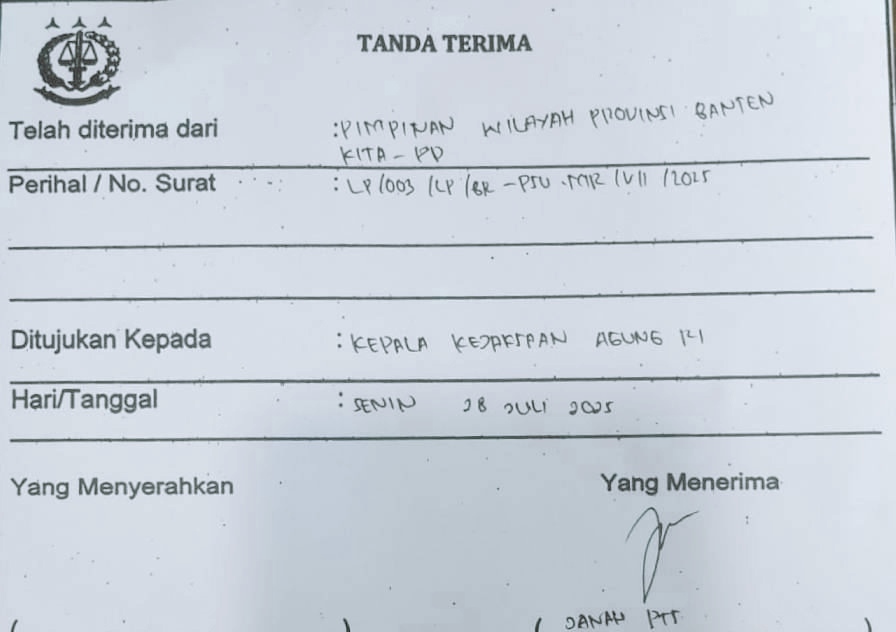 TANDA TERIMA
Telah diterima dari : PIMPINAN WILAYAH PROVINSI BANTEN
KITA - PD
Perihal / No. Surat : LP/003/LP/BR-PSU.MR/VII/2025
Ditujukan Kepada : KEPALA KEJAKSAAN AGUNG RI
Hari/Tanggal : SENIN 28 JULI 2025
Yang Menyerahkan Yang Menerima
( ) ( DANAH PTT )